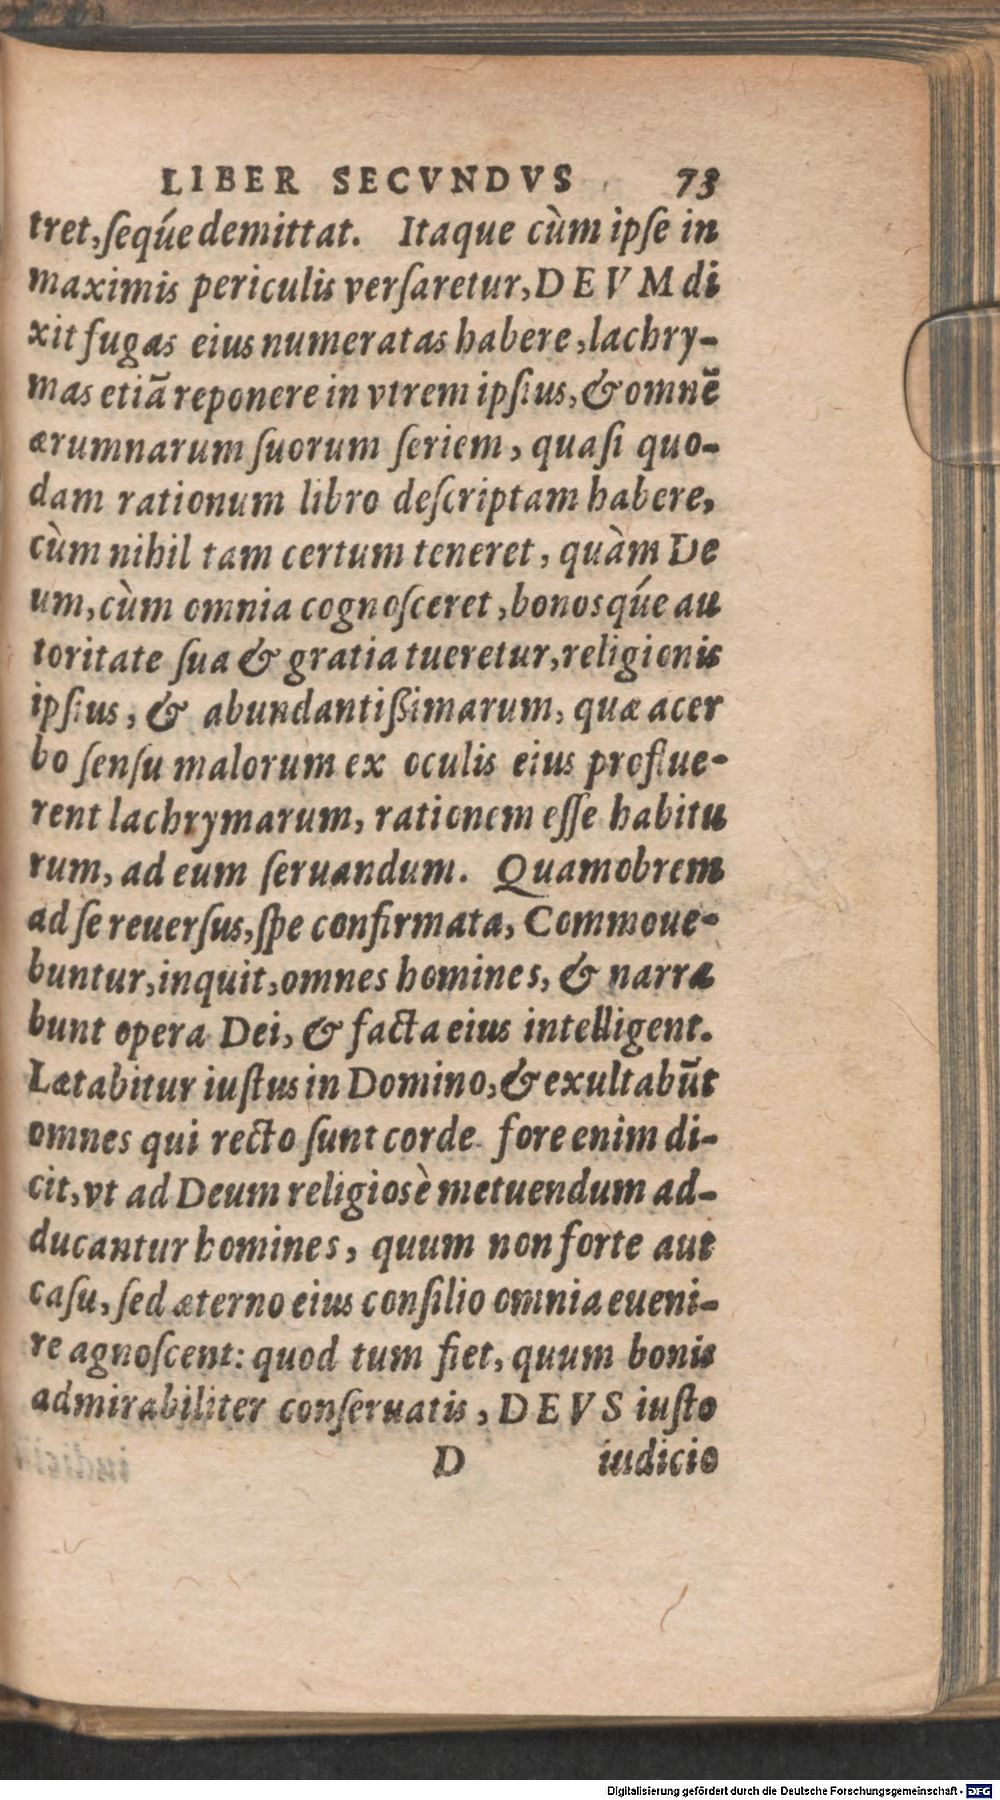 LIBER SECVNDVS 73
tret, ſeqúe demittat. Itaque cùm ipſe in
maximis periculis verſaretur, DEVM di
xit fugas eius numeratas habere, lachry-
mas etiã reponere in vtrem ipſius, & omnẽ
ærumnarum ſuorum ſeriem, quaſi quo-
dam rationum libro deſcriptam habere,
cùm nihil tam certum teneret, quàm De
um, cùm omnia cognoſceret, bonosqúe au
toritate ſua & gratia tueretur, religionis
ipſius, & abundantißimarum, quæ acer
bo ſenſu malorum ex oculis eius proflue-
rent lachrymarum, rationem eſſe habitu
rum, ad eum ſeruandum. Quamobrem
ad ſe reuerſus, ſpe confirmata, Commoue-
buntur, inquit, omnes homines, & narra
bunt opera Dei, & facta eius intelligent.
Lætabitur iuſtus in Domino, & exultabũt
omnes qui recto ſunt corde. fore enim di-
cit, vt ad Deum religiosè metuendum ad-
ducantur homines, quum non forte aut
caſu, ſed æterno eius conſilio omnia eueni-
re agnoſcent: quod tum fiet, quum bonis
admirabiliter conſeruatis, DEVS iuſto
D iudicio
Digitalisierung gefördert durch die Deutsche Forschungsgemeinschaft - DFG